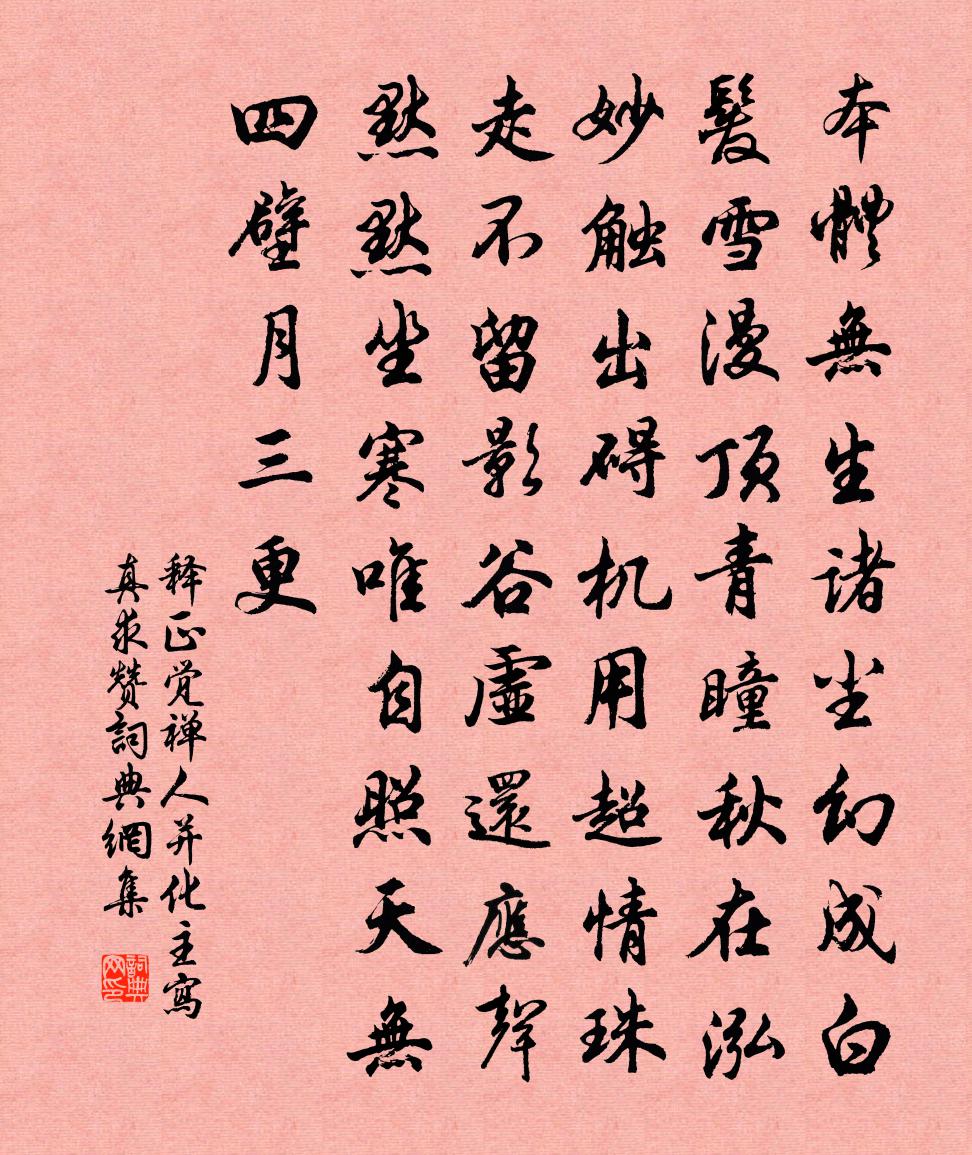 本體無生諸尘幻成白
髮雪漫顶青瞳秋在泓
妙触出碍机用超情珠
走不留影谷虛還應聲
默默坐寒唯自照天無
四壁月三更
释正觉禅人并化主寫
真求赞詞典網集
詞典網印